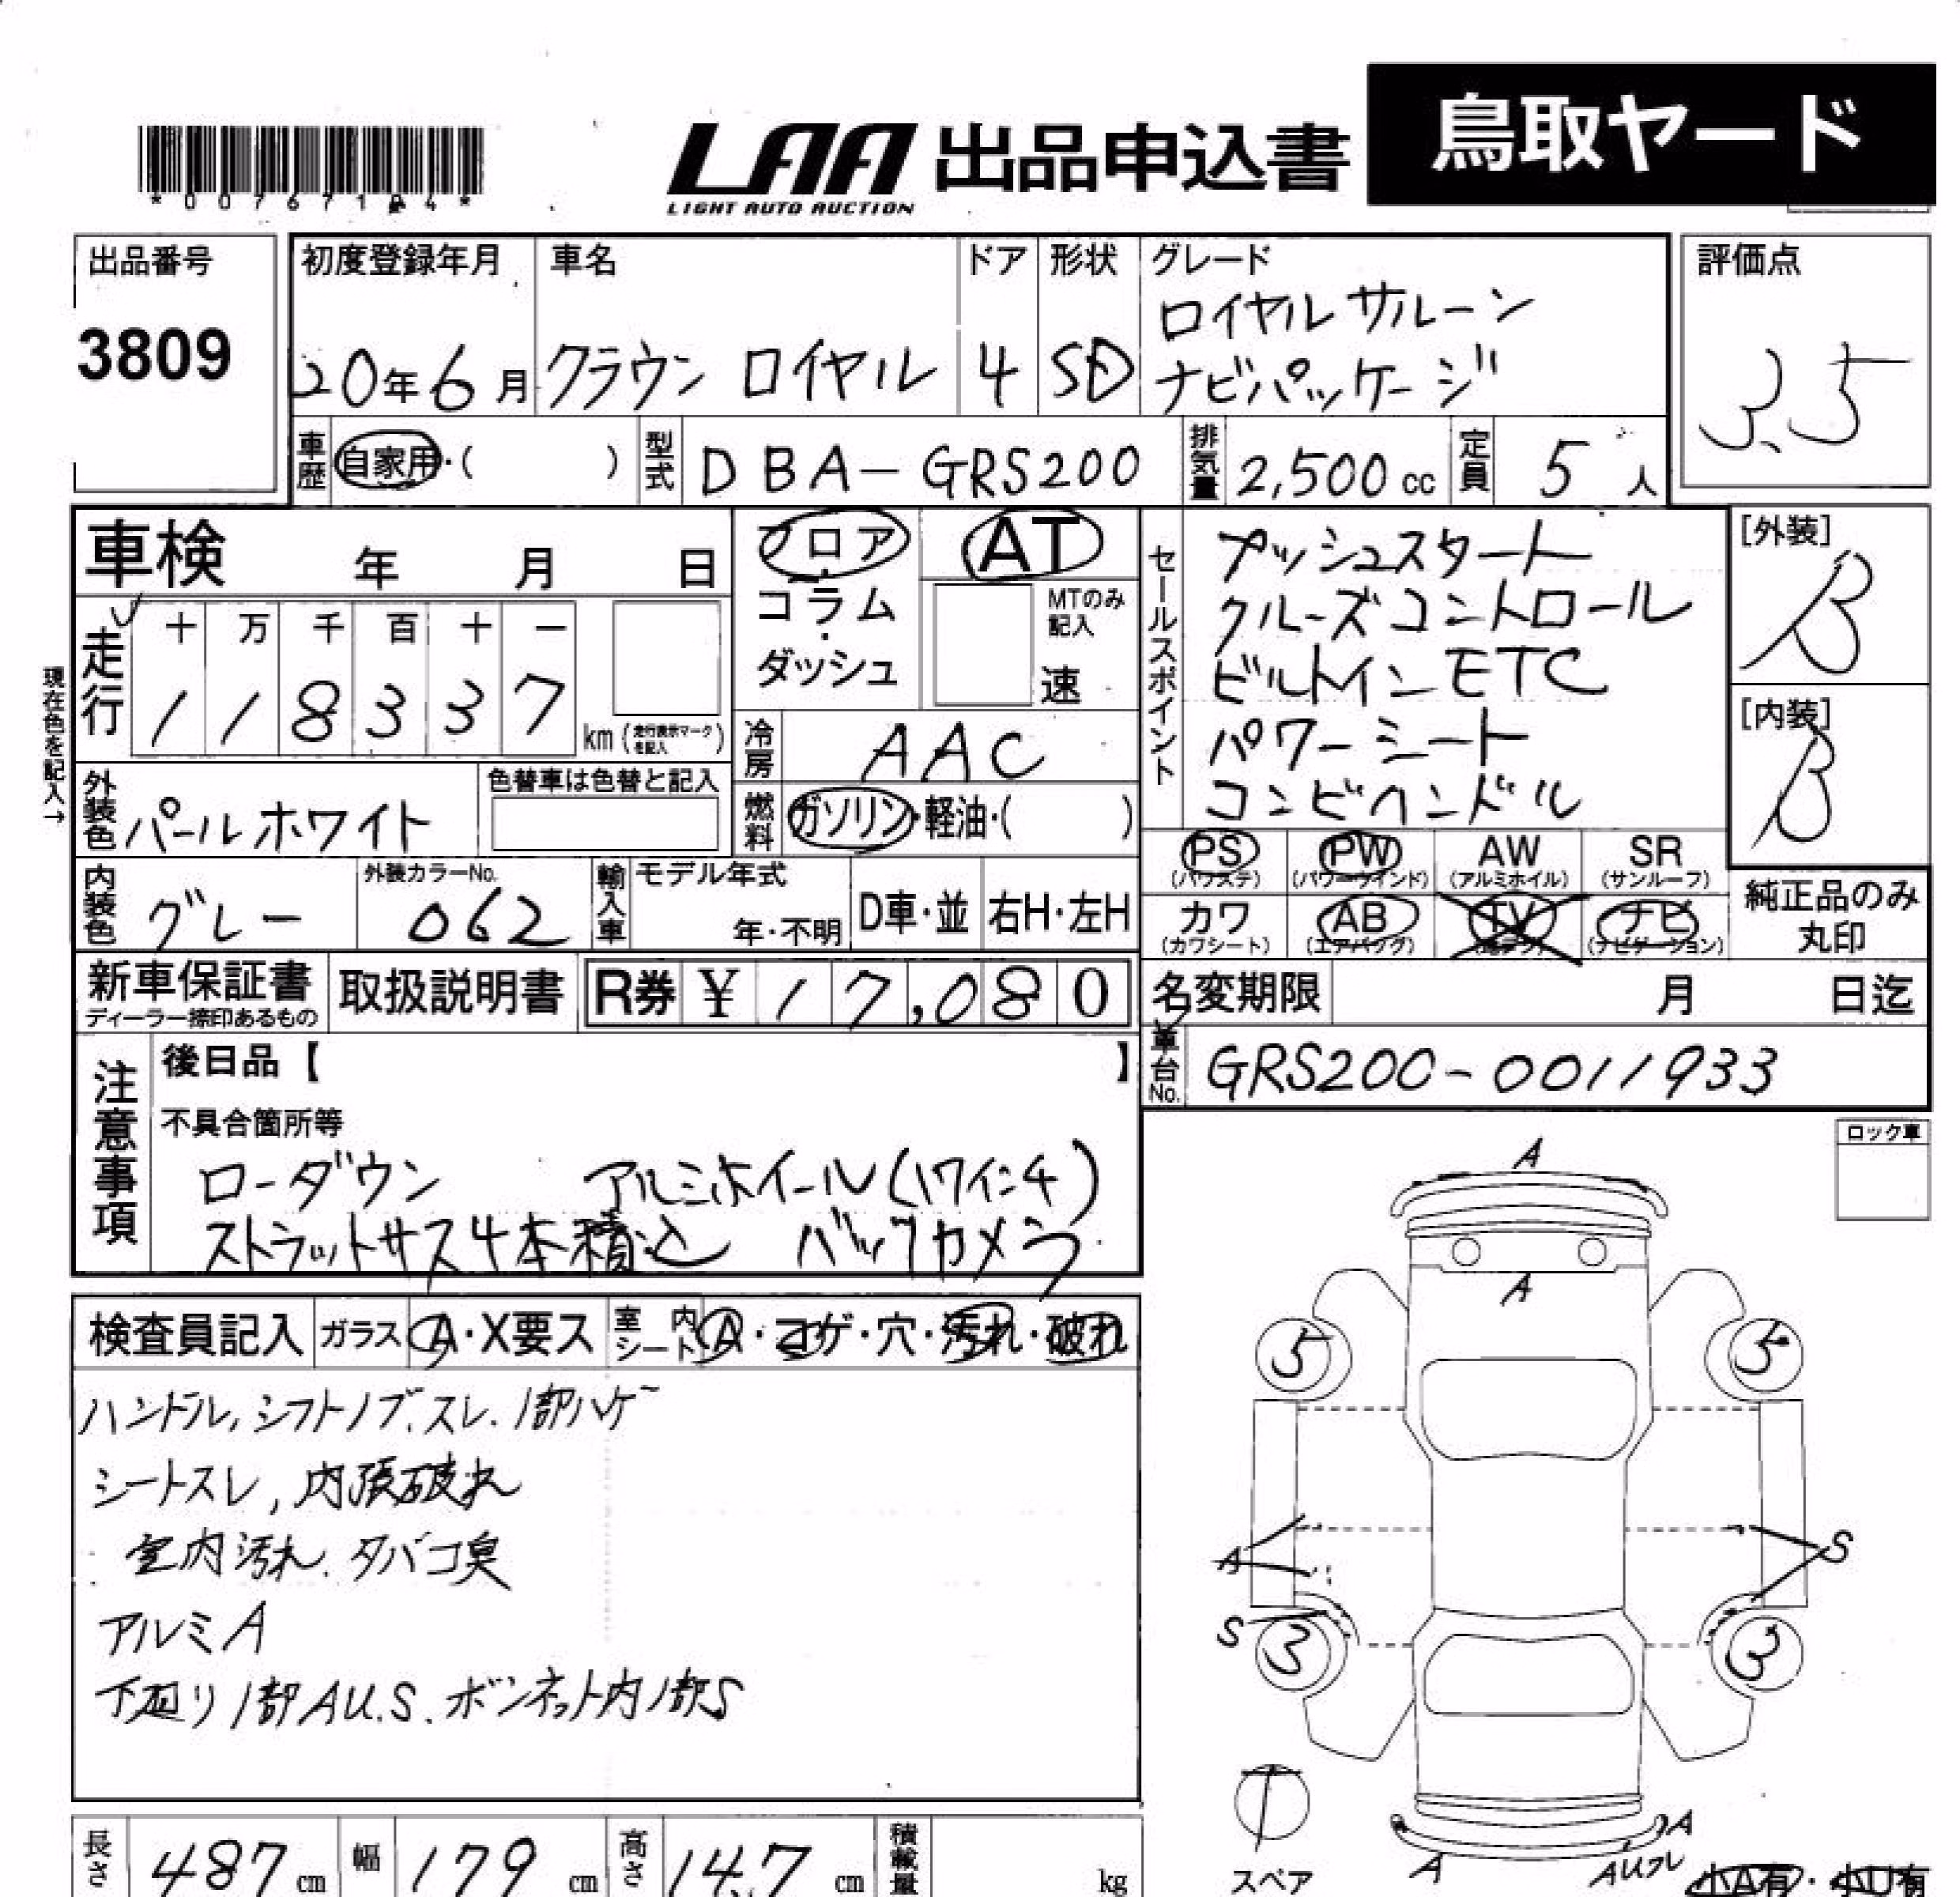 鳥取ヤード
LAA 出品申込書
LIGHT AUTO AUCTION
*0076719 4*
出品番号
3809
初度登録年月
20年6月
車名
クラウン ロイヤル
ドア
4
形状
SD
グレード
ロイヤルサルーン
ナビパッケージ
評価点
3.5
車歴
自家用・( )
型式
DBA-GRS200
排気量
2,500cc
定員
5人
車検 年 月 日
フロア
コラム
・
ダッシュ
AT
MTのみ
記入
速
セールスポイント
プッシュスタート
クルーズコントロール
ビルトインETC
パワーシート
コンビヘンドル
[外装]
B
[内装]
B
現在色を記入→
走行
十 万 千 百 十 一
1 1 8 3 3 7
km (走行表示マークを記入)
冷房
AAC
外装色
パールホワイト
色替車は色替と記入
燃料
ガソリン・軽油・( )
PS
(パワステ)
PW
(パワーウインド)
AW
(アルミホイル)
SR
(サンルーフ)
内装色
グレー
外装カラーNo.
062
輸入車
モデル年式
年・不明
D車・並
右H・左H
カワ
(カワシート)
AB
(エアバッグ)
TV
ナビ
(ナビゲーション)
純正品のみ
丸印
新車保証書
ディーラー捺印あるもの
取扱説明書
R券 ¥ 17,080
名変期限 月 日迄
車台No.
GRS200-0011933
注意事項
後日品【 】
不具合箇所等
ローダウン アルミホイール(17インチ)
ストラットサス4本積込 バックカメラ
ロック車
検査員記入
ガラス
A・X要ス
室内シート
A・コゲ・穴・汚れ・破れ
ハンドル,シフトノブ,スレ.1部ハゲ
シートスレ,内張破れ
室内汚れ.タバコ臭
アルミA
下廻り1部AU.S.ボンネット内1部S
A
A
5
5
A
S
S
3
3
T
スペア
A
A
AUフレ
小A有・小U有
長さ
487cm
幅
179cm
高さ
147cm
積載量
kg